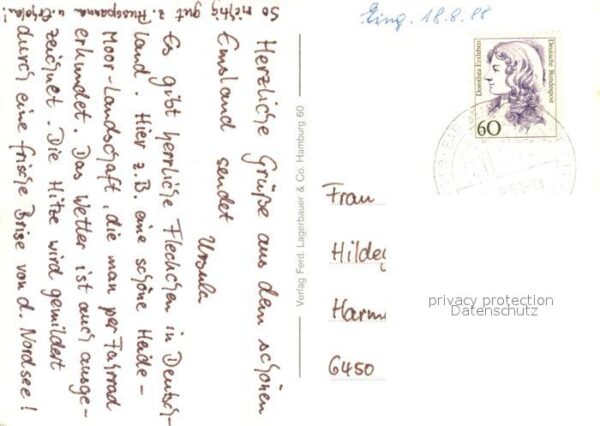 Eing. 18.8.88
Herzliche Grüße aus dem schönen
Emsland sendet
Ursula
Es gibt herrliche Fleckchen in Deutsch-
land. Hier z.B. eine schöne Heide-
Moor-Landschaft, die man per Fahrrad
erkundet. Das Wetter ist auch ausge-
zeichnet. Die Hitze wird gemildert
durch eine frische Brise von d. Nordsee!
So richtig gut z. Ausspannen
u. Erholen!
Verlag Ferd. Lagerbauer & Co. Hamburg 60
Dorothea Erxleben
Deutsche Bundespost
60
Frau
Hildeg
Harm
6450
privacy protection
Datenschutz